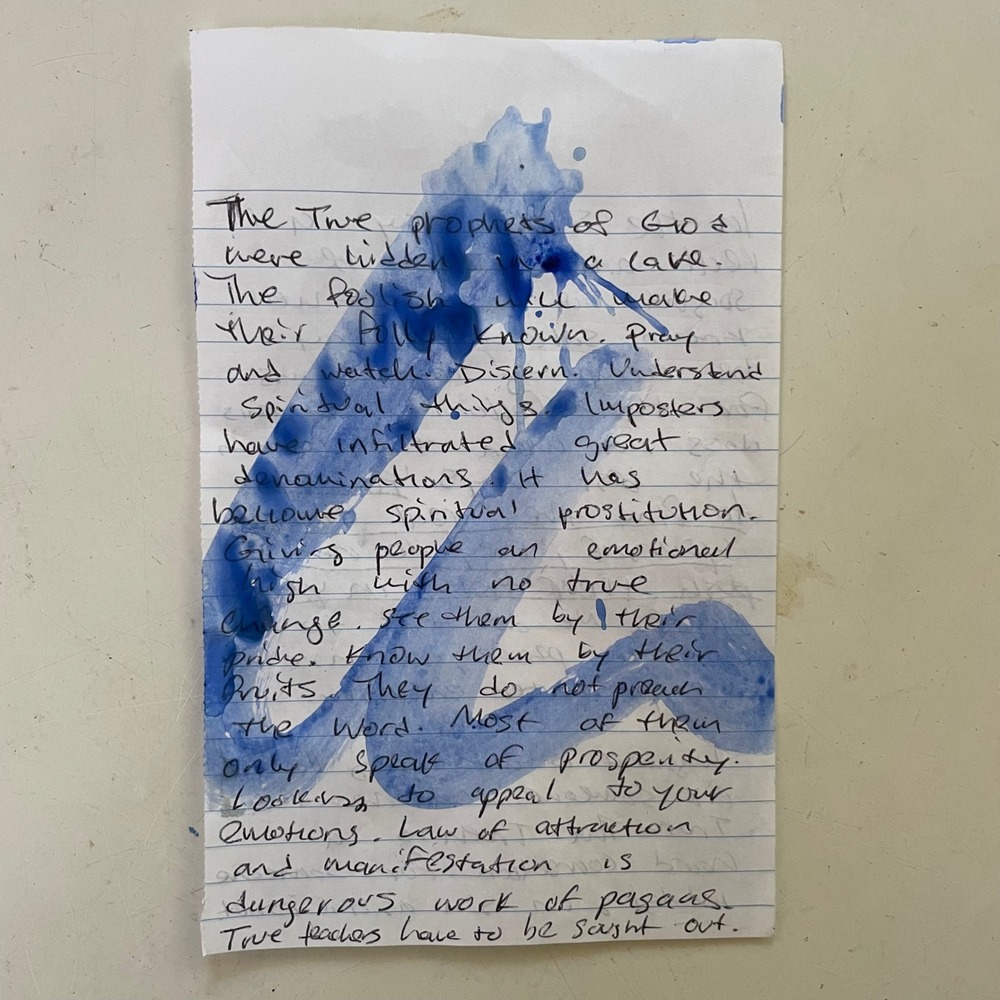 The True prophets of God
were hidden in a cave.
The foolish will make
their folly known. Pray
and watch. Discern. Understand
spiritual things. Imposters
have infiltrated great
denominations. It has
become spiritual prostitution.
Giving people an emotional
high with no true
change. See them by their
pride. Know them by their
fruits. They do not preach
the Word. Most of them
only speak of prosperity.
Looking to appeal to your
emotions. Law of attraction
and manifestation is
dangerous work of pagans.
True teachers have to be sought out.